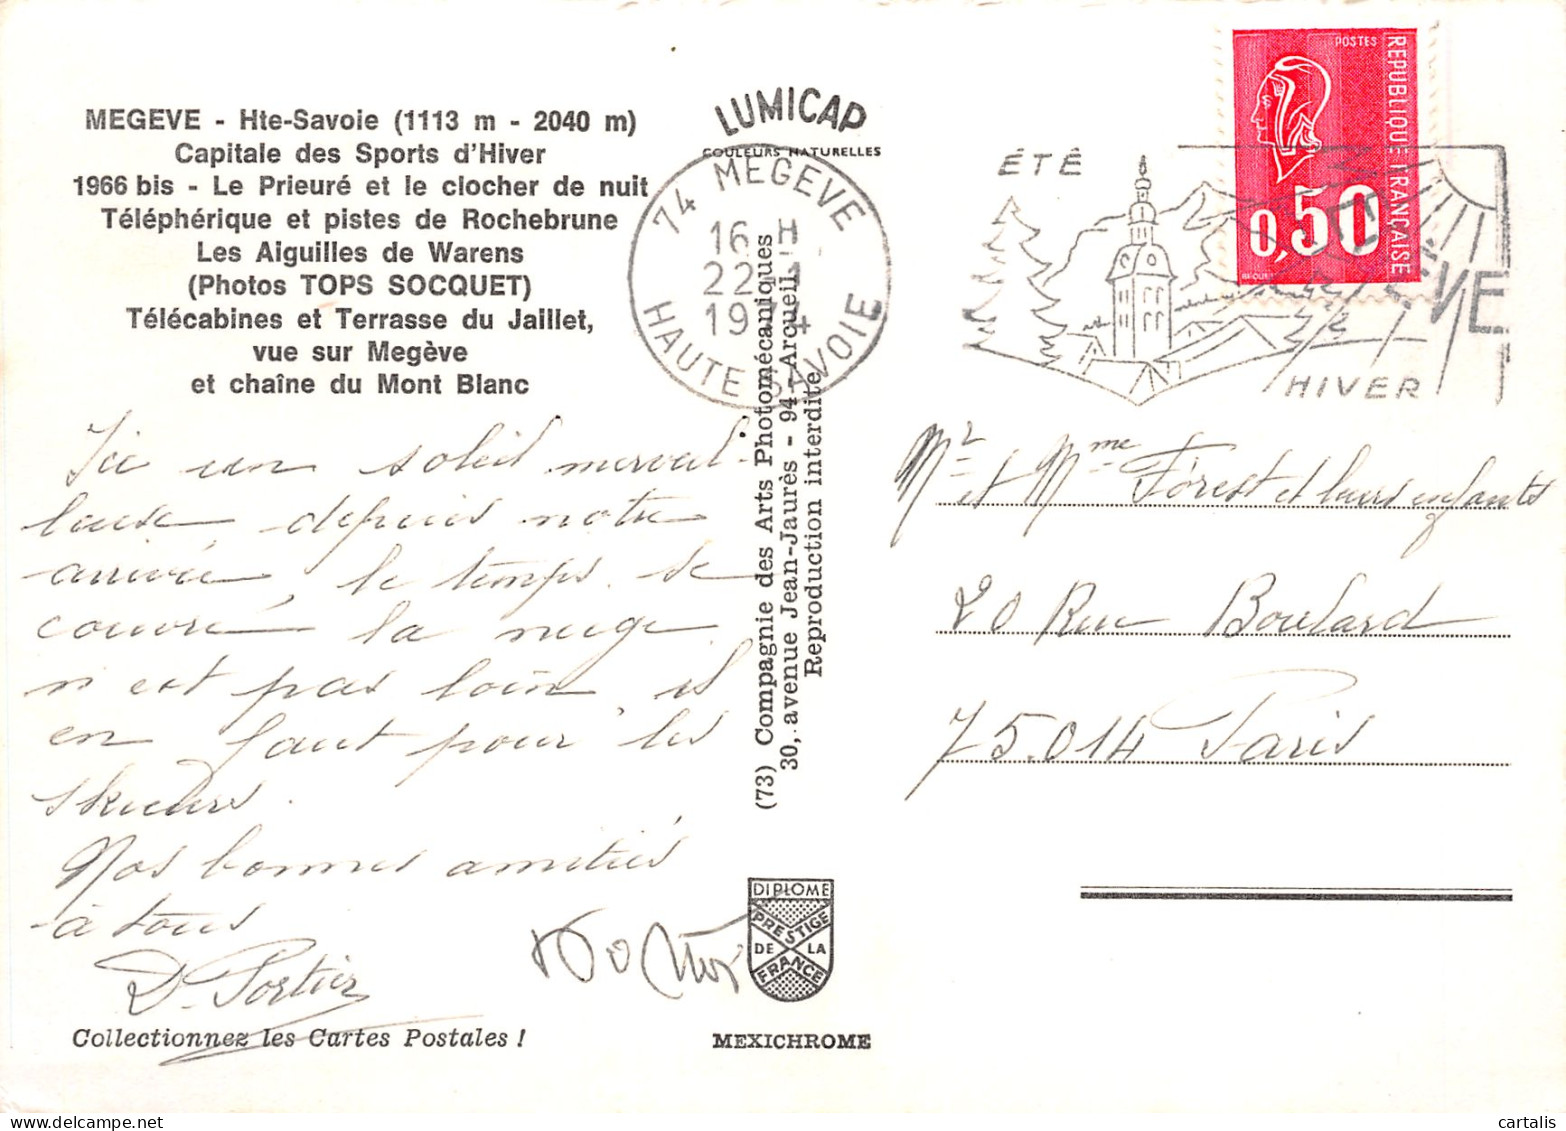 MEGEVE - Hte-Savoie (1113 m - 2040 m)
Capitale des Sports d'Hiver
1966 bis - Le Prieuré et le clocher de nuit
Téléphérique et pistes de Rochebrune
Les Aiguilles de Warens
(Photos TOPS SOCQUET)
Télécabines et Terrasse du Jaillet,
vue sur Megève
et chaîne du Mont Blanc
Ici un soleil merveil-
leux depuis notre
arrivée, le temps se
couvre, la neige
n'est pas loin, il
en faut pour les
skieurs.
Nos bonnes amitiés
à tous
D. Portier
Collectionnez les Cartes Postales !
LUMICAP
COULEURS NATURELLES
74 MEGEVE
16 H
22 - 1
1974
HAUTE SAVOIE
(73) Compagnie des Arts Photomécaniques
30, avenue Jean-Jaurès - 94-Arcueil
Reproduction interdite
DIPLOME
PRESTIGE
DE LA
FRANCE
MEXICHROME
POSTES
REPUBLIQUE FRANÇAISE
0,50
ÉTÉ
MEGÈVE
HIVER
Mr et Mme Forest et leurs enfants
20 Rue Boulard
75.014 Paris